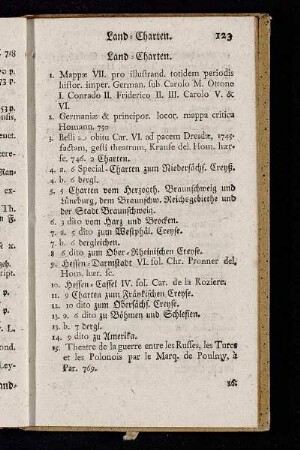 Land-Charten. 123
Land-Charten.
1. Mappæ VII. pro illustrand. totidem periodis
histor. imper. German. sub Carolo M. Ottone
I. Conrado II. Friderico II. III. Carolo V. &
VI.
2. Germaniæ & principor. locor. mappa critica
Homann. 750
3. Belli ab obitu Car. VI. ad pacem Dresdæ, 1745.
factam, gesti theatrum, Krause del. Hom. hær-
sc. 746. 2 Charten.
4. a. 6 Special-Charten zum Niedersächs. Creyß.
4. b. 6 dergl.
5. 5 Charten vom Herzogth. Braunschweig und
Lüneburg, dem Braunschw. Reichsgebiethe und
der Stadt Braunschweig.
6. 3 dito vom Harz und Brocken.
7. a. 5 dito zum Westphäl. Creyse.
7. b. 6 dergleichen.
8. 6 dito zum Ober-Rheinischen Creyse.
9. Hessen-Darmstadt VI. fol. Chr. Pronner del.
Hom. hær. sc.
10. Hessen-Cassel IV. fol. Car. de la Roziere.
11. 9 Charten zum Fränkischen Creyse.
12. 10 dito zum Obersächs. Creyse.
13. a. 6 dito zu Böhmen und Schlesien.
13. b. 7 dergl.
14. 9 dito zu Amerika.
15. Theatre de la guerre entre les Russes, les Turcs
et les Polonois par le Marq. de Poulnay, à
Par. 769.
16.